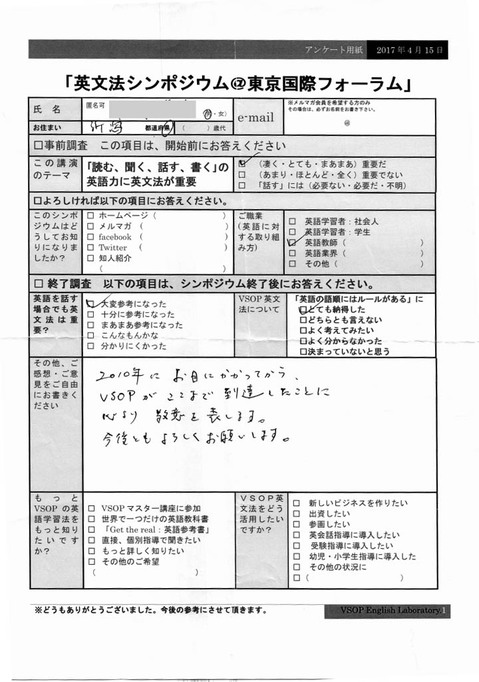 アンケート用紙 2017年4月15日
「英文法シンポジウム@東京国際フォーラム」
氏 名 匿名可 (男・女) e-mail ※メルマガ会員を希望する方のみ
その場合は、必ずお名前をお書き下さい。
@
お住まい 都道府県 ( )歳代
□事前調査 この項目は、開始前にお答えください
この講演のテーマ 「読む、聞く、話す、書く」の英語力に英文法が重要
□ (凄く・とても・まあまあ)重要だ
□ (あまり・ほとんど・全く)重要でない
□ 「話す」には(必要ない・必要だ・不明)
□よろしければ以下の項目にお答えください。
このシンポジウムはどうしてお知りになりましたか?
□ ホームページ( )
□ メルマガ ( )
□ facebook ( )
□ Twitter ( )
□ 知人紹介
( )
ご職業
(英語に対する取り組み方)
□ 英語学習者:社会人
□ 英語学習者:学生
□ 英語教師( )
□ 英語業界( )
□ その他( )
□ 終了調査 以下の項目は、シンポジウム終了後にお答えください。
英語を話す場合でも英文法は重要?
□ 大変参考になった
□ 十分に参考になった
□ まあまあ参考になった
□ こんなもんかな
□ 分かりにくかった
VSOP英文法について
「英語の語順にはルールがある」に
□とても納得した
□どちらとも言えない
□よく考えてみたい
□よく分からなかった
□決まっていないと思う
その他、ご感想・ご意見をご自由にお書きください
2010年に お目にかかってから、
VSOPが ここまで 到達したことに
心より 敬意を表します。
今後とも よろしくお願いします。
もっとVSOPの英語学習法をもっと知りたいですか?
□ VSOPマスター講座に参加
□ 世界で一つだけの英語教科書
□ 「Get the real:英語参考書」
□ 直接、個別指導で聞きたい
□ もっと詳しく知りたい
□ その他のご希望
( )
VSOP英文法をどう活用したいですか?
□ 新しいビジネスを作りたい
□ 出資したい
□ 参画したい
□ 英会話指導に導入したい
□ 受験指導に導入したい
□ 幼児・小学生指導に導入した
□ その他の状況に
□ ( )
※どうもありがとうございました。今後の参考にさせて頂きます。
VSOP English Laboratory 1